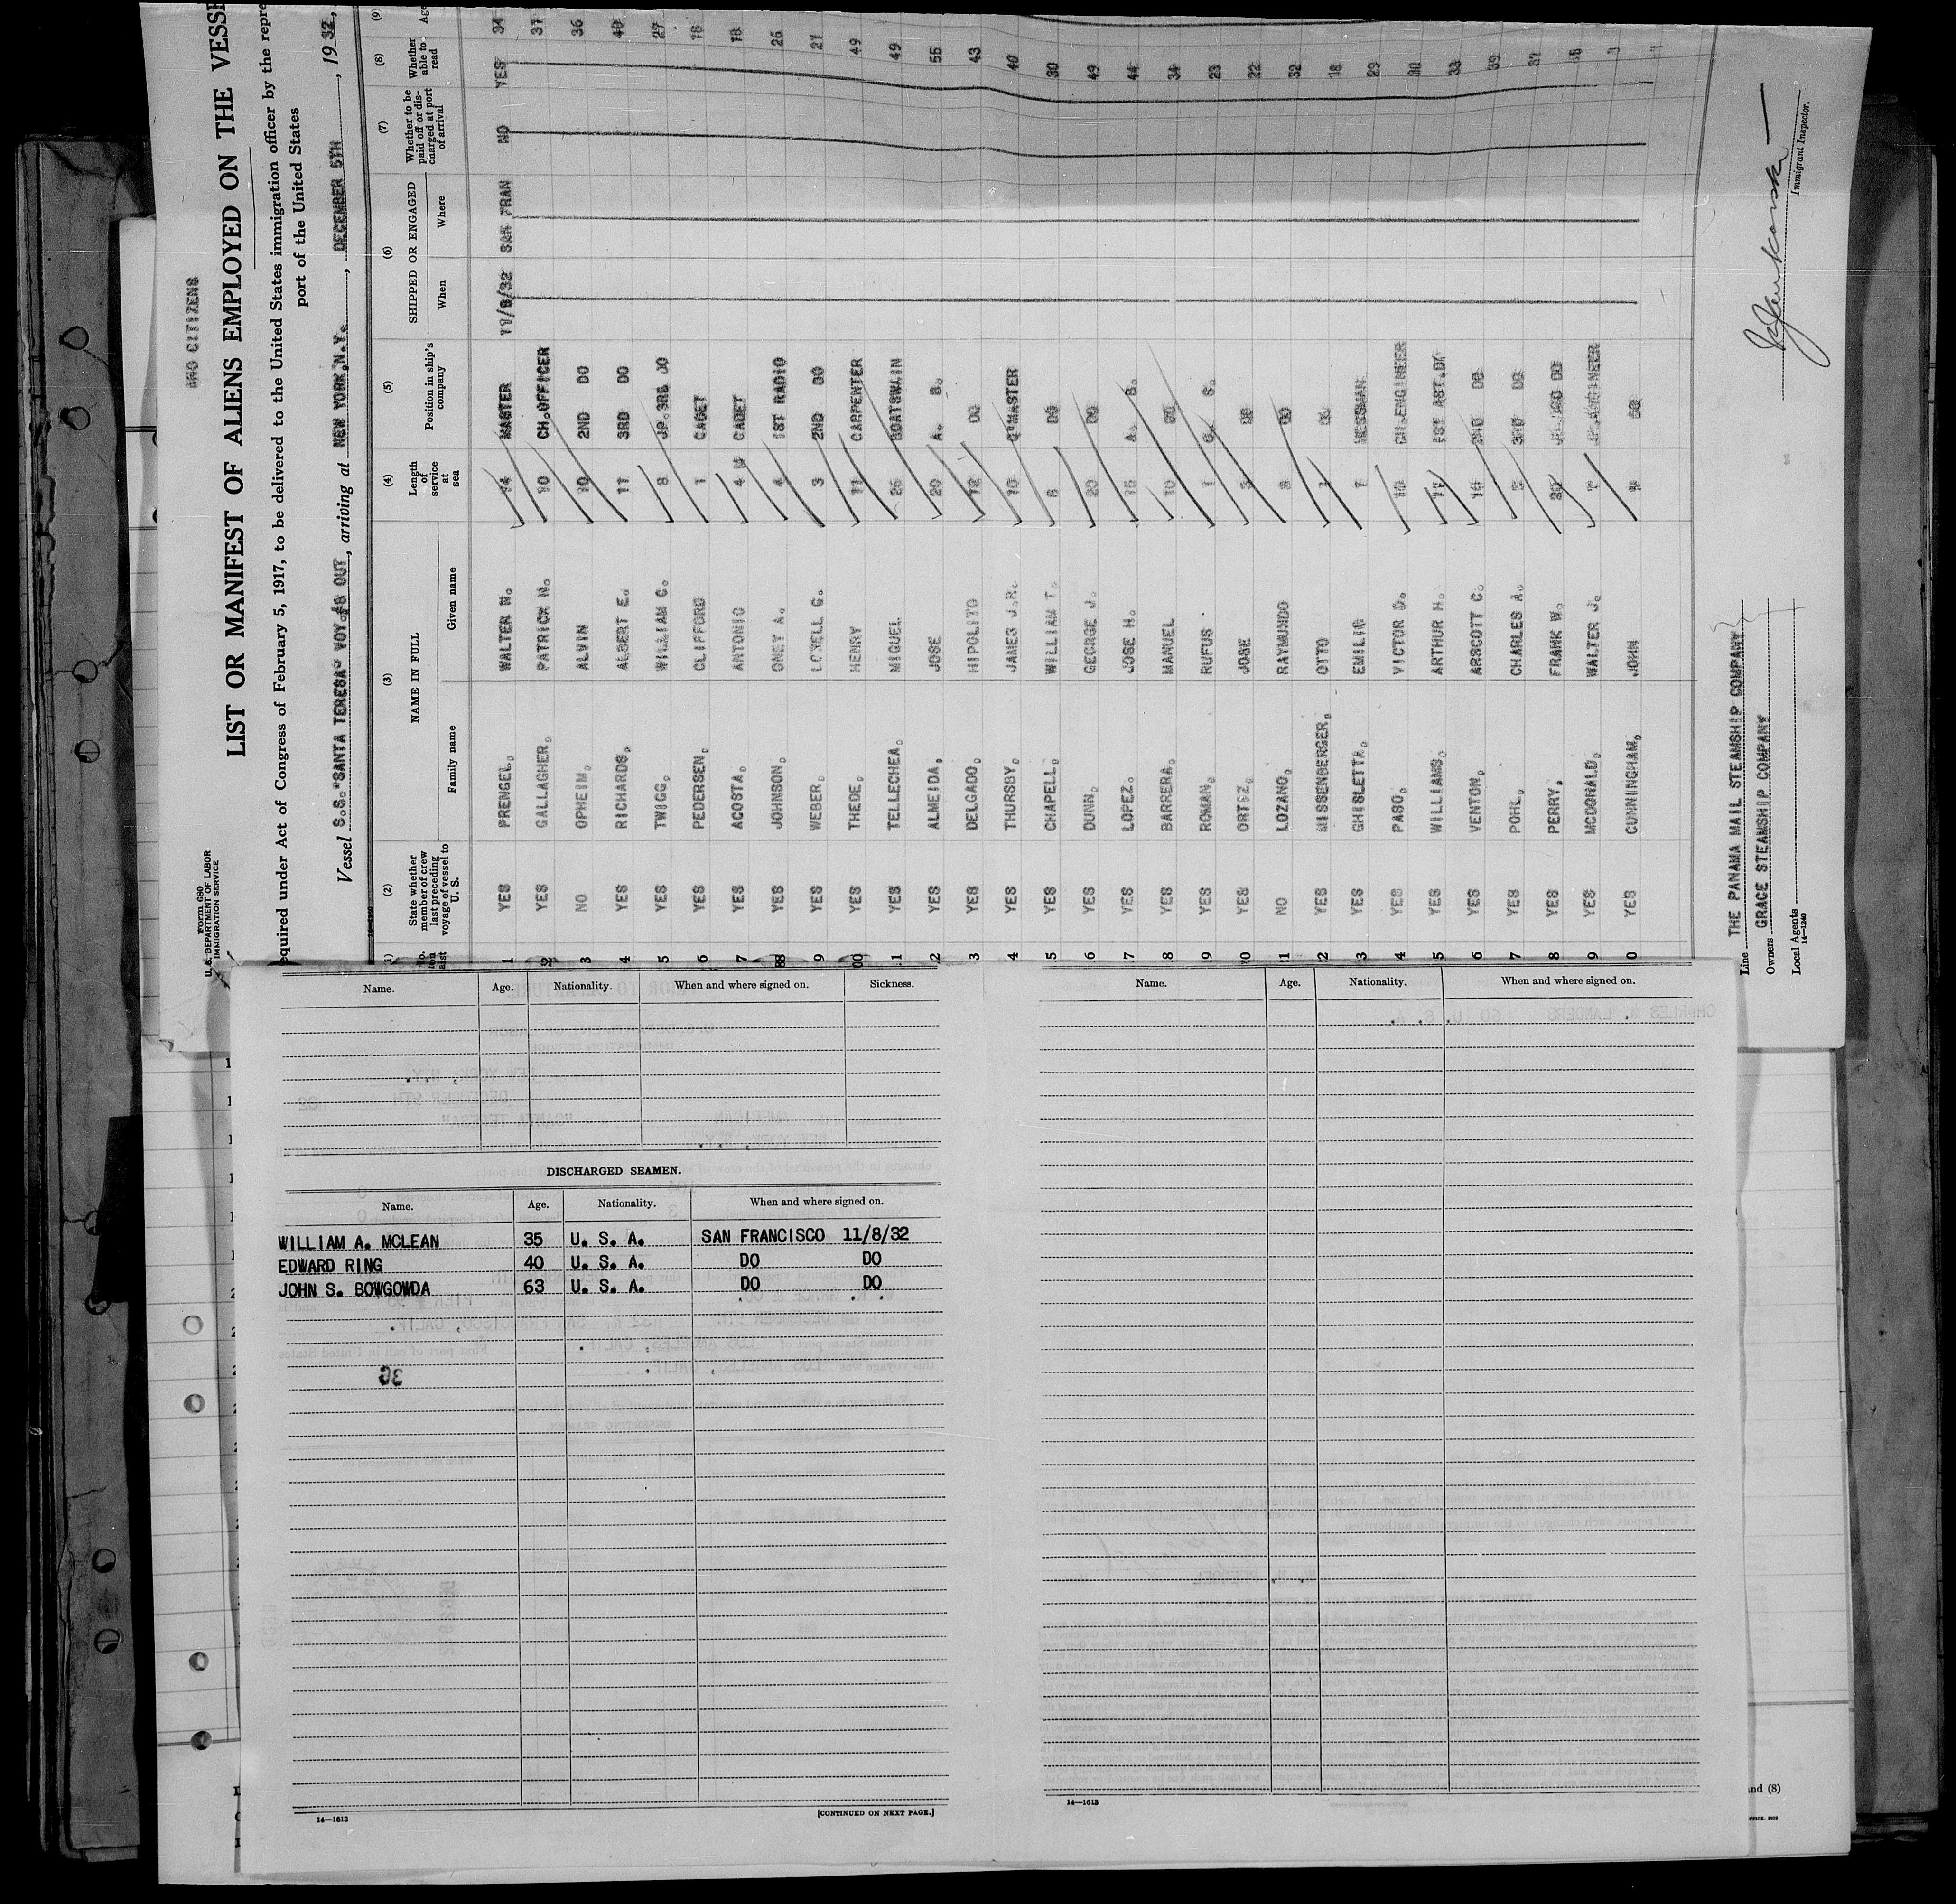 AND CITIZENS
Form 680
U. S. DEPARTMENT OF LABOR
IMMIGRATION SERVICE
LIST OR MANIFEST OF ALIENS EMPLOYED ON THE VESSE
equired under Act of Congress of February 5, 1917, to be delivered to the United States immigration officer by the repre
port of the United States
Vessel S.S. "SANTA TERESA" VOY. OUT, arriving at NEW YORK, N.Y., DECEMBER 5TH, 1932,
(2) (3) (4) (5) (6) (7) (8) (9)
State whether member of crew last preceding voyage of vessel to U. S. NAME IN FULL Family name Given name Length of service at sea Position in ship's company SHIPPED OR ENGAGED When Where Whether to be paid off or discharged at port of arrival Whether able to read Age
1 YES PRENGEL, WALTER N. 14 MASTER 11/8/32 SAN FRAN NO YES 34
2 YES GALLAGHER, PATRICK N. 10 CH.OFFICER 37
3 NO OPHEIM, ALVIN 10 2ND DO 36
4 YES RICHARDS, ALBERT E. 11 3RD DO 40
5 YES TWIGG, WILLIAM C. 8 JR.3RD DO 27
6 YES PEDERSEN, CLIFFORD 1 CADET 18
7 YES ACOSTA, ANTONIO 4 M CADET 18
8 YES JOHNSON, ONEY A. 4 1ST RADIO 26
9 YES WEBER, LOWELL G. 3 2ND DO 21
YES THEDE, HENRY 11 CARPENTER 49
1 YES TELLECHEA, MIGUEL 26 BOATSWAIN 49
2 YES ALMEIDA, JOSE 20 A. B. 55
3 YES DELGADO, HIPOLITO 12 DO 43
4 YES THURSBY, JAMES J.R. 10 Q'MASTER 40
5 YES CHAPELL, WILLIAM T. 8 DO 30
6 YES DUNN, GEORGE J. 20 DO 49
7 YES LOPEZ, JOSE H. 15 A. B. 44
8 YES BARRERA, MANUEL 10 DO 34
9 YES ROMAN, RUFUS 1 O. S. 23
0 YES ORTIZ, JOSE 3 DO 22
1 NO LOZANO, RAYMUNDO 8 DO 32
2 YES MISSENBERGER, OTTO 1 DO 18
3 YES GHISLETTA, EMILIO 7 MESSMAN 29
4 YES PASO, VICTOR D. 10 CH.ENGINEER 30
5 YES WILLIAMS, ARTHUR H. 11 1ST AST.DO 33
6 YES VENTON, ARSCOTT C. 16 2ND DO 39
7 YES POHL, CHARLES A. 3RD DO
8 YES PERRY, FRANK W. DO
9 YES MCDONALD, WALTER J.
0 YES CUNNINGHAM, JOHN DO
Line THE PANAMA MAIL STEAMSHIP COMPANY
Owners GRACE STEAMSHIP COMPANY
Local Agents
14—1240
Immigrant Inspector.
Name. Age. Nationality. When and where signed on. Sickness.
DISCHARGED SEAMEN.
Name. Age. Nationality. When and where signed on.
WILLIAM A. MCLEAN 35 U. S. A. SAN FRANCISCO 11/8/32
EDWARD RING 40 U. S. A. DO DO
JOHN S. BOWGOWDA 63 U. S. A. DO DO
14—1613
[CONTINUED ON NEXT PAGE.]
Name. Age. Nationality. When and where signed on.
14—1613
nd (8)